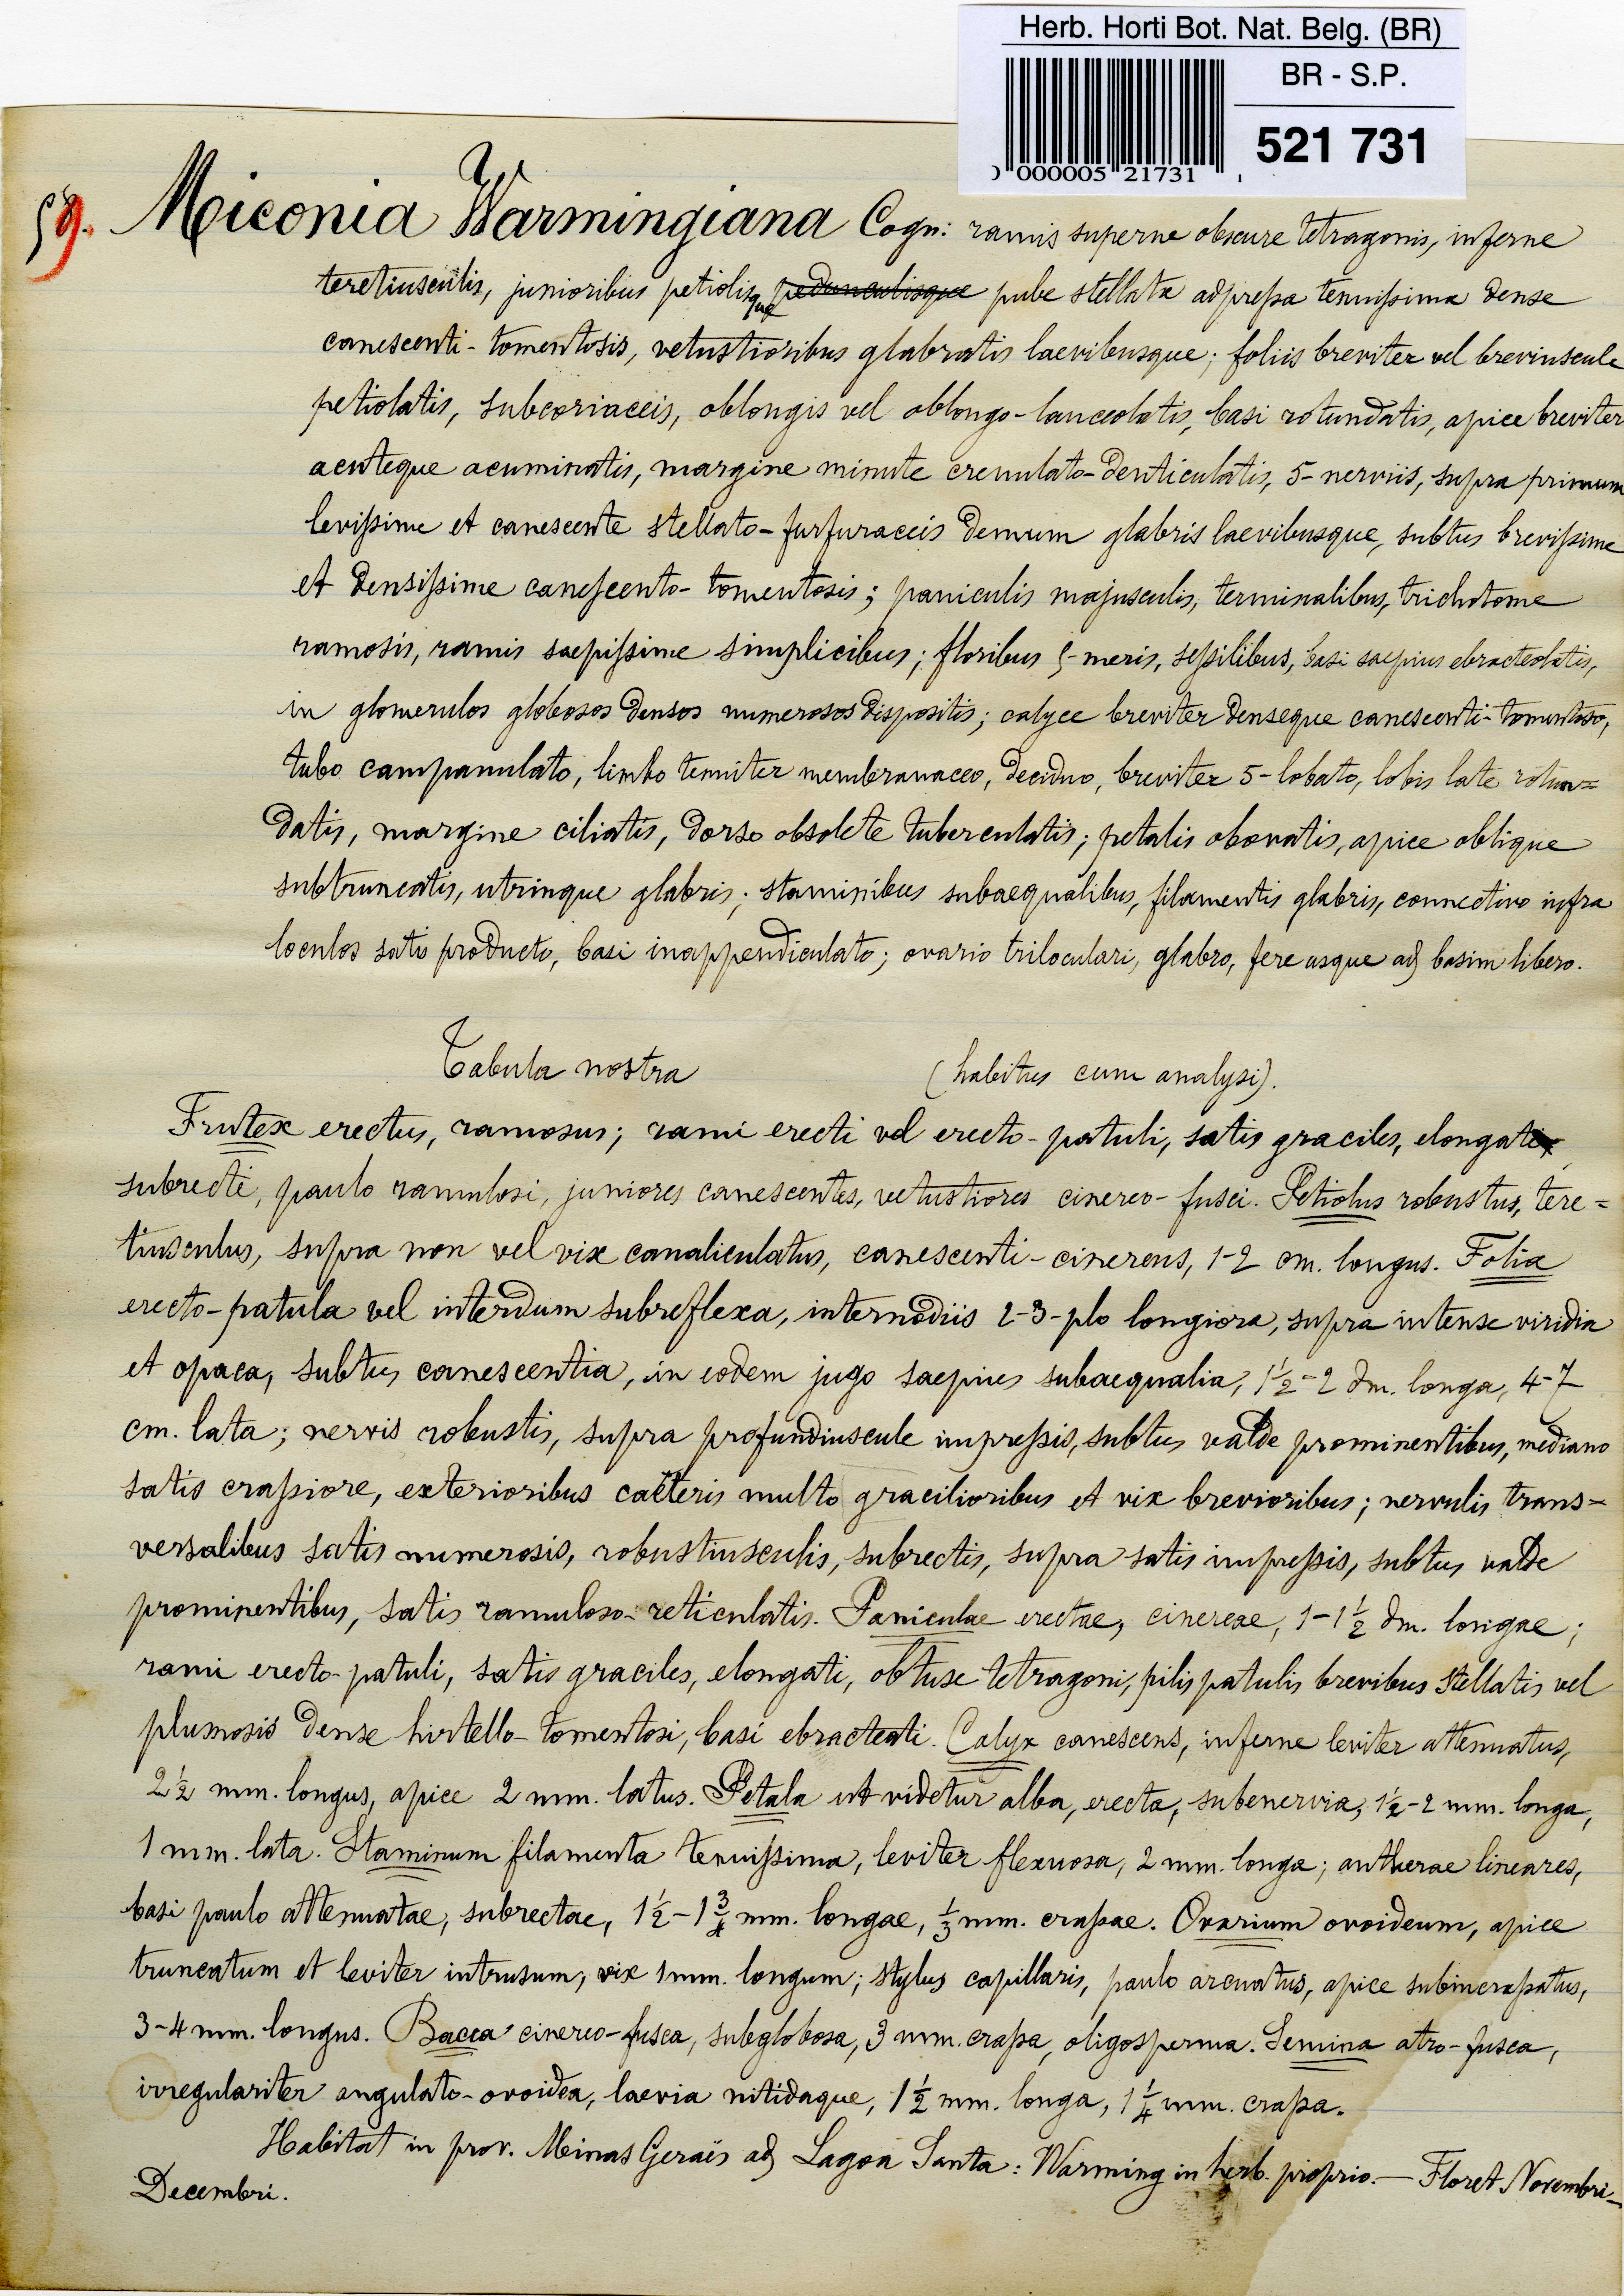 Herb. Horti Bot. Nat. Belg. (BR)
BR - S.P.
521 731
000005 21731
59. Miconia Warmingiana Cogn: ramis superne obscure tetragonis, inferne
teretiusculis, junioribus petiolisque pedunculisque pube stellata adpressa tenuissima dense
canescenti-tomentosis, vetustioribus glabratis laevibusque; foliis breviter vel breviuscule
petiolatis, subcoriaceis, oblongis vel oblongo-lanceolatis, basi rotundatis, apice breviter
acuteque acuminatis, margine minute crenulato-denticulatis, 5-nerviis, supra primum
levissime et canescente stellato-furfuraceis demum glabris laevibusque, subtus brevissime
et densissime canescento-tomentosis; paniculis majusculis, terminalibus, trichotome
ramosis, ramis saepissime simplicibus; floribus 5-meris, sessilibus, basi saepius ebracteolatis,
in glomerulos globosos densos numerosos dispositis; calyce breviter denseque canescenti-tomentoso,
tubo campanulato, limbo tenuiter membranaceo, deciduo, breviter 5-lobato, lobis late rotun=
datis, margine ciliatis, dorso obsolete tuberculatis; petalis obovatis, apice oblique
subtruncatis, utrinque glabris; staminibus subaequalibus, filamentis glabris, connectivo infra
loculos satis producto, basi inappendiculato; ovario triloculari, glabro, fere usque ad basim libero.
Tabula nostra (habitus cum analysi).
Frutex erectus, ramosus; rami erecti vel erecto-patuli, satis graciles, elongati
subrecti, paulo ramulosi, juniores canescentes, vetustiores cinereo-fusci. Petiolus robustus, tere=
tiusculus, supra non vel vix canaliculatus, canescenti-cinereus, 1-2 cm. longus. Folia
erecto-patula vel interdum subreflexa, internodiis 2-3-plo longiora, supra intense viridia
et opaca, subtus canescentia, in eodem jugo saepius subaequalia, 1½-2 dm. longa, 4-7
cm. lata; nervis robustis, supra profundiuscule impressis, subtus valde prominentibus, mediano
satis crassiore, exterioribus caeteris multo gracilioribus et vix brevioribus; nervulis trans-
versalibus satis numerosis, robustiusculis, subrectis, supra satis impressis, subtus valde
prominentibus, satis ramuloso-reticulatis. Paniculae erectae, cinereae, 1-1½ dm. longae;
rami erecto-patuli, satis graciles, elongati, obtuse tetragoni, pilis patulis brevibus stellatis vel
plumosis dense hirtello-tomentosi, basi ebracteati. Calyx canescens, inferne leviter attenuatus,
2½ mm. longus, apice 2 mm. latus. Petala ut videtur alba, erecta, subenervia, 1½-2 mm. longa,
1 mm. lata. Staminum filamenta tenuissima, leviter flexuosa, 2 mm. longa; antherae lineares,
basi paulo attenuatae, subrectae, 1½-1¾ mm. longae, ⅓ mm. crassae. Ovarium ovoideum, apice
truncatum et leviter intrusum, vix 1 mm. longum; stylus capillaris, paulo arcuatus, apice subincrassatus,
3-4 mm. longus. Bacca cinereo-fusca, subglobosa, 3 mm. crassa, oligosperma. Semina atro-fusca,
irregulariter angulato-ovoidea, laevia nitidaque, 1½ mm. longa, 1¼ mm. crassa.
Habitat in prov. Minas Geraës ad Lagoa Santa: Warming in herb. proprio. — Floret Novembri-
Decembri.